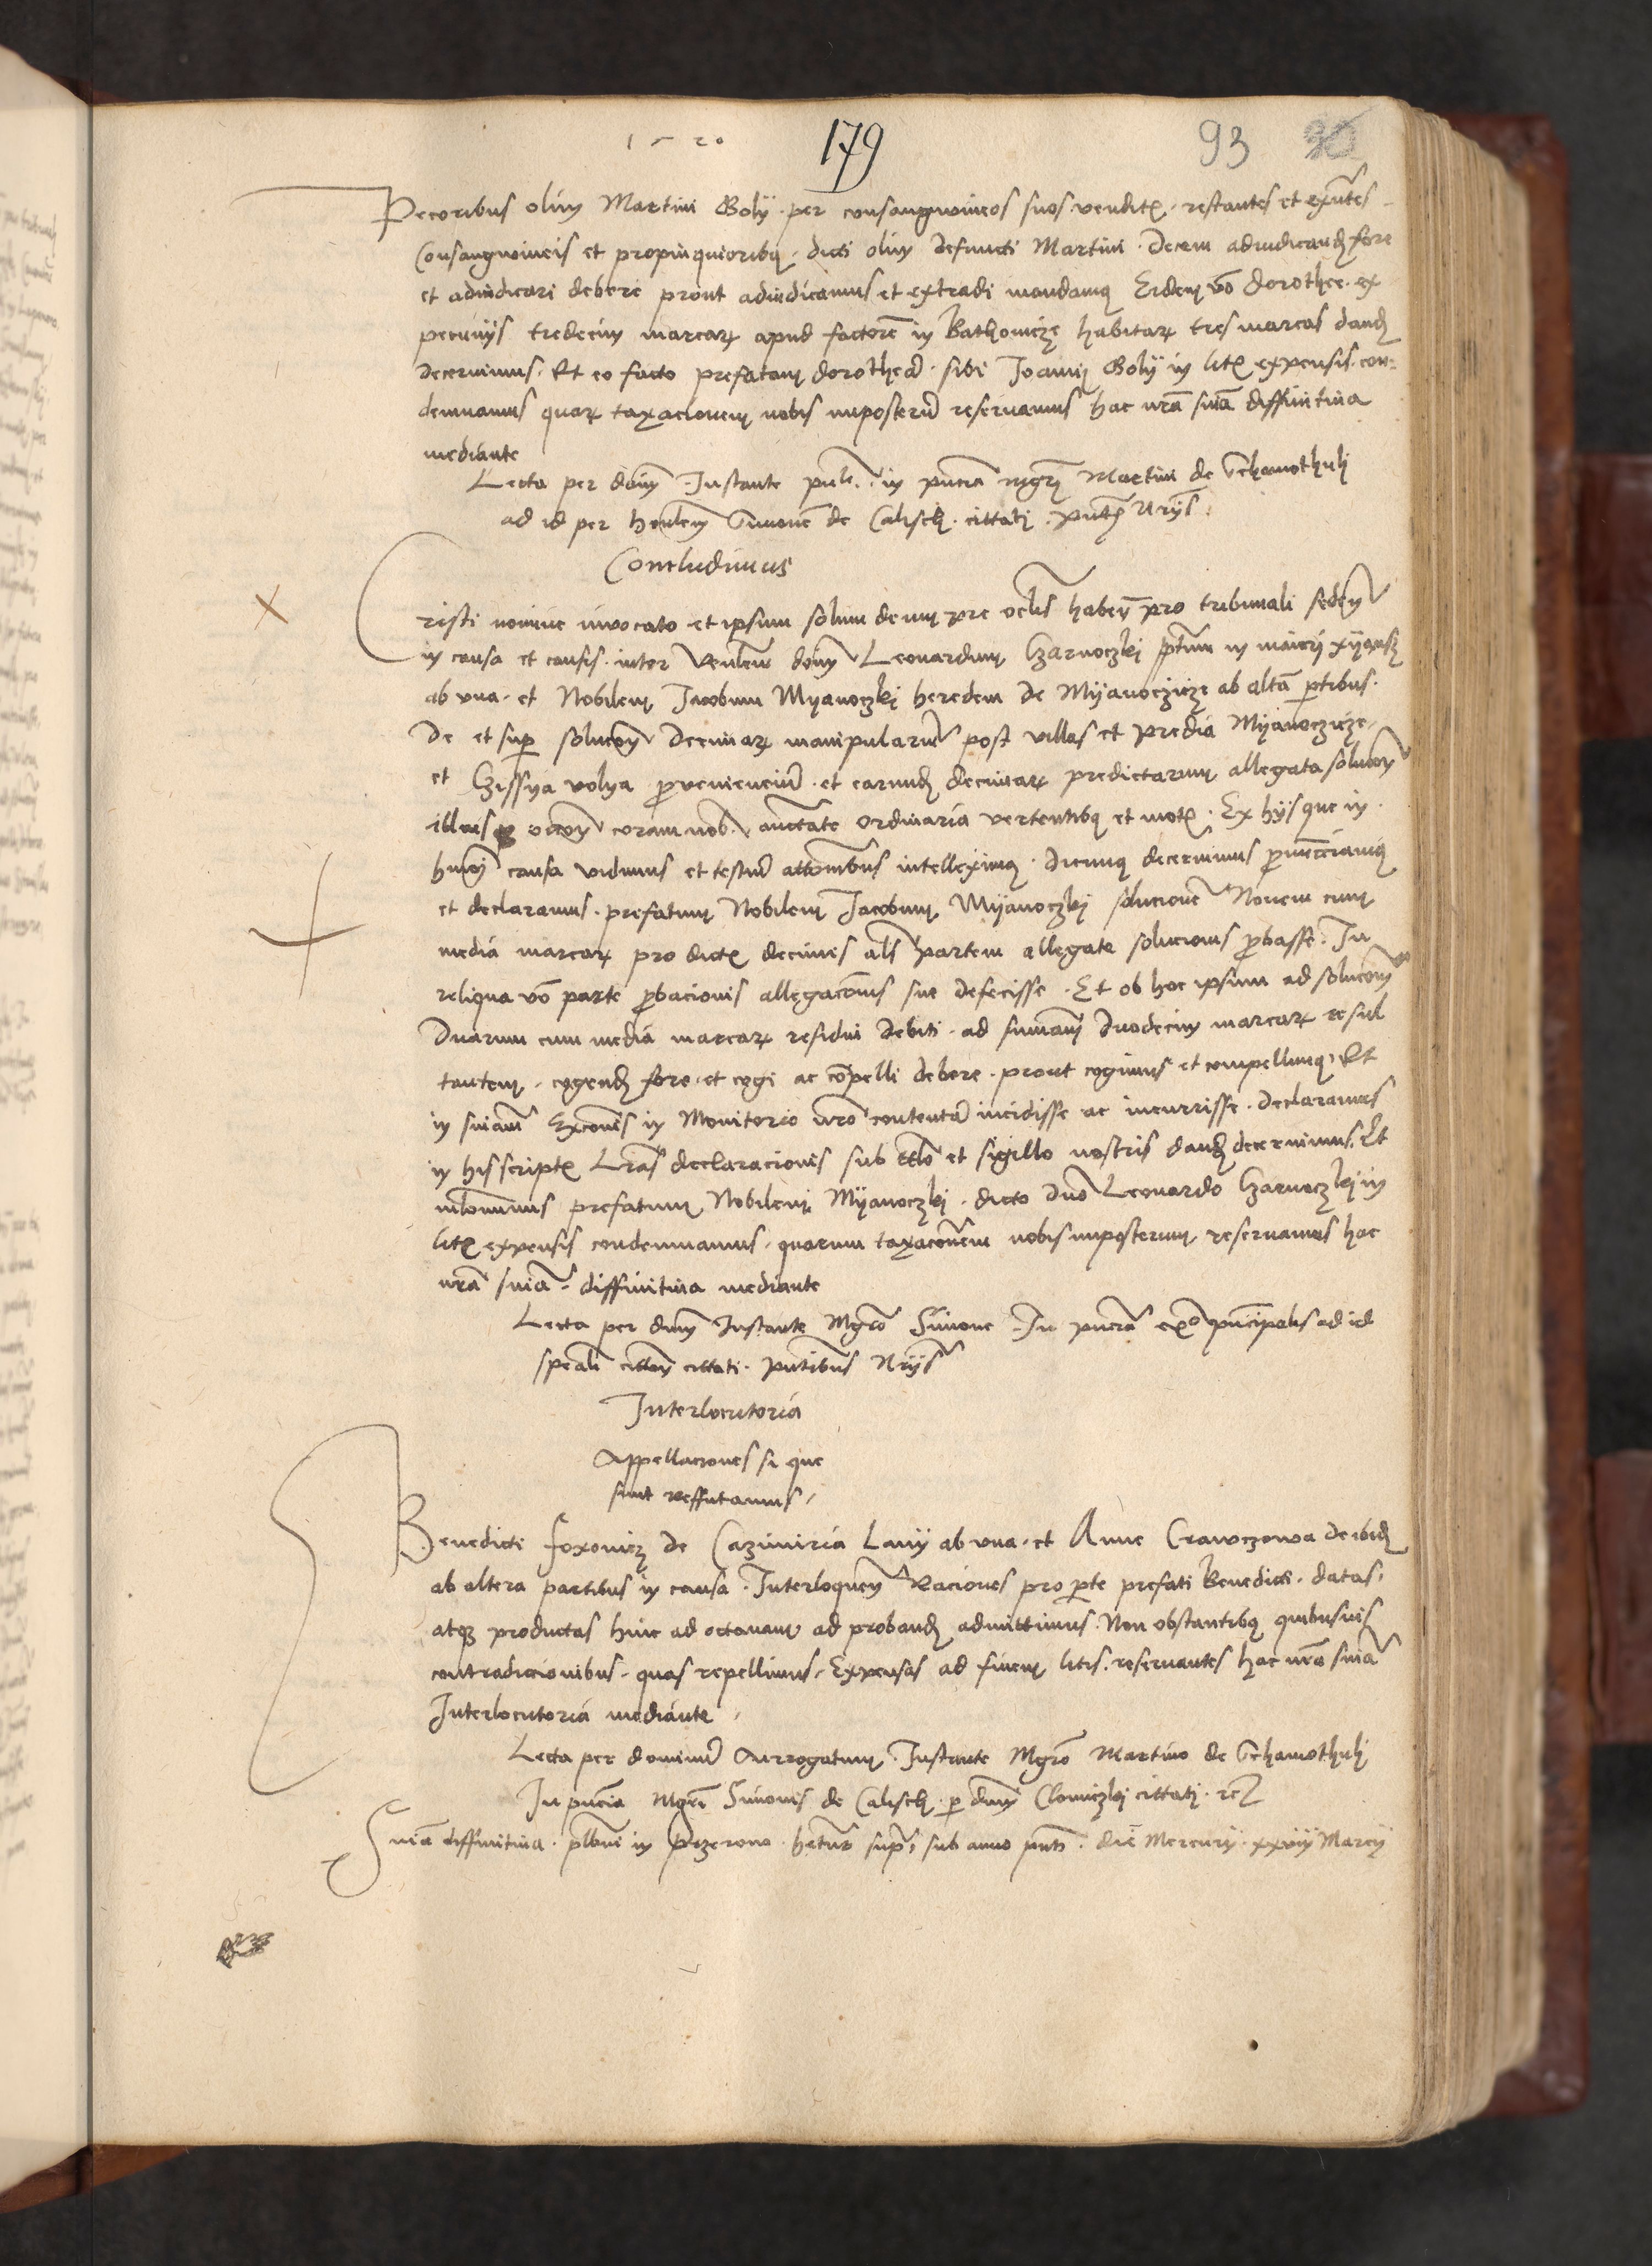 1520 179 93 90
Pecoribus olim Martini Goly per consangwineos suos venditis restantes et exñtes
Consangwineis et propinquioribus dicti olim defuncti Martini Decem adiudicand fore
et adiudicari debere prout adiudicamus et extradi mandamus Eidem vo dorothee ex
pecunijs tredecim marcar apud factore in Bathowicze habitar tres marcas dand
decernimus Et eo facto prefatam dorothea sibi Joanni Goly in litis expensis con-
demnamus quar taxacionem nobis imposteru reservamus hac nra snia diffinitiva
mediante
Lecta per dnm Instante in pncia mgri Martini de Schamothuli
ad id per Simone de Calisch cittati
Concludimus
Cristi nomine invocato et ipsum solum deum pre oclis haben pro tribunali seden
in causa et causis inter Venlem dnm Leonardum Czarnoczki in
ab vna et Nobilem Jacobum Mijanoczki heredem de Mijanoczicze ab altera partibus
De et super solucon decimar manipulariu post villas et predia Mijanoczicze
et Czissya volya provenienciu et earund decimar predictarum allegata solucon
illius occon coram nob auctate ordinaria vertentibus et motis Ex hijs que in
hmoi causa vidimus et testiu attonibus intelleximus dicimus decernimus pronucciamus
et declaramus prefatum Nobilem Jacobum Mijanoczki solucione Novem cum
media marcar pro dictis decimis als partem allegate solucionis probasse In
reliqua vo parte probacionis allegaconis sue defecisse Et ob hoc ipsum ad solucom
Duarum cum media marcar residui debiti ad summam duodecim marcar resul
tantem cogend fore et cogi ac compelli debere prout cogimus et compellimus Et
in sniam Exconis in Monitorio nro contenta incidisse ac incurrisse declaramus
in his scriptis Lras declaracionis sub et sigillo nostris dand decernimus Et
nihlominus prefatum Nobilem Mijanoczki dicto dno Leonardo Czarnoczki in
litis expensis condemnamus quarum taxaconem nobis imposterum reservamus hac
nra snia diffinitiva mediante
Lecta per dnm Instante Mgro Simone In pncia principalis ad id
speali citton cittati pntibus Nrijs
Interlocutoria
Appellaciones si que
sunt reffutamus
Benedicti Foxowicz de Cazimiria Lanij ab vna et Anne Crawczowa de ibid
ab altera partibus in causa Interloquen Raciones pro parte prefati Benedicti datas
atque productas hinc ad octavam ad proband admittimus Non obstantibus quibusvis
contradicionibus quas repellimus Expensas ad finem litis reservantes hac nra snia
Interlocutoria mediante
Lecta per dominu Surrogatum Instante Mgro Martino de Schamothuli
In pncia Mgri Simonis de Calisch per dnm cittati
Snia diffinitiva plbni in hetur supra sub anno pnti die Mercurij xxviij Marcij